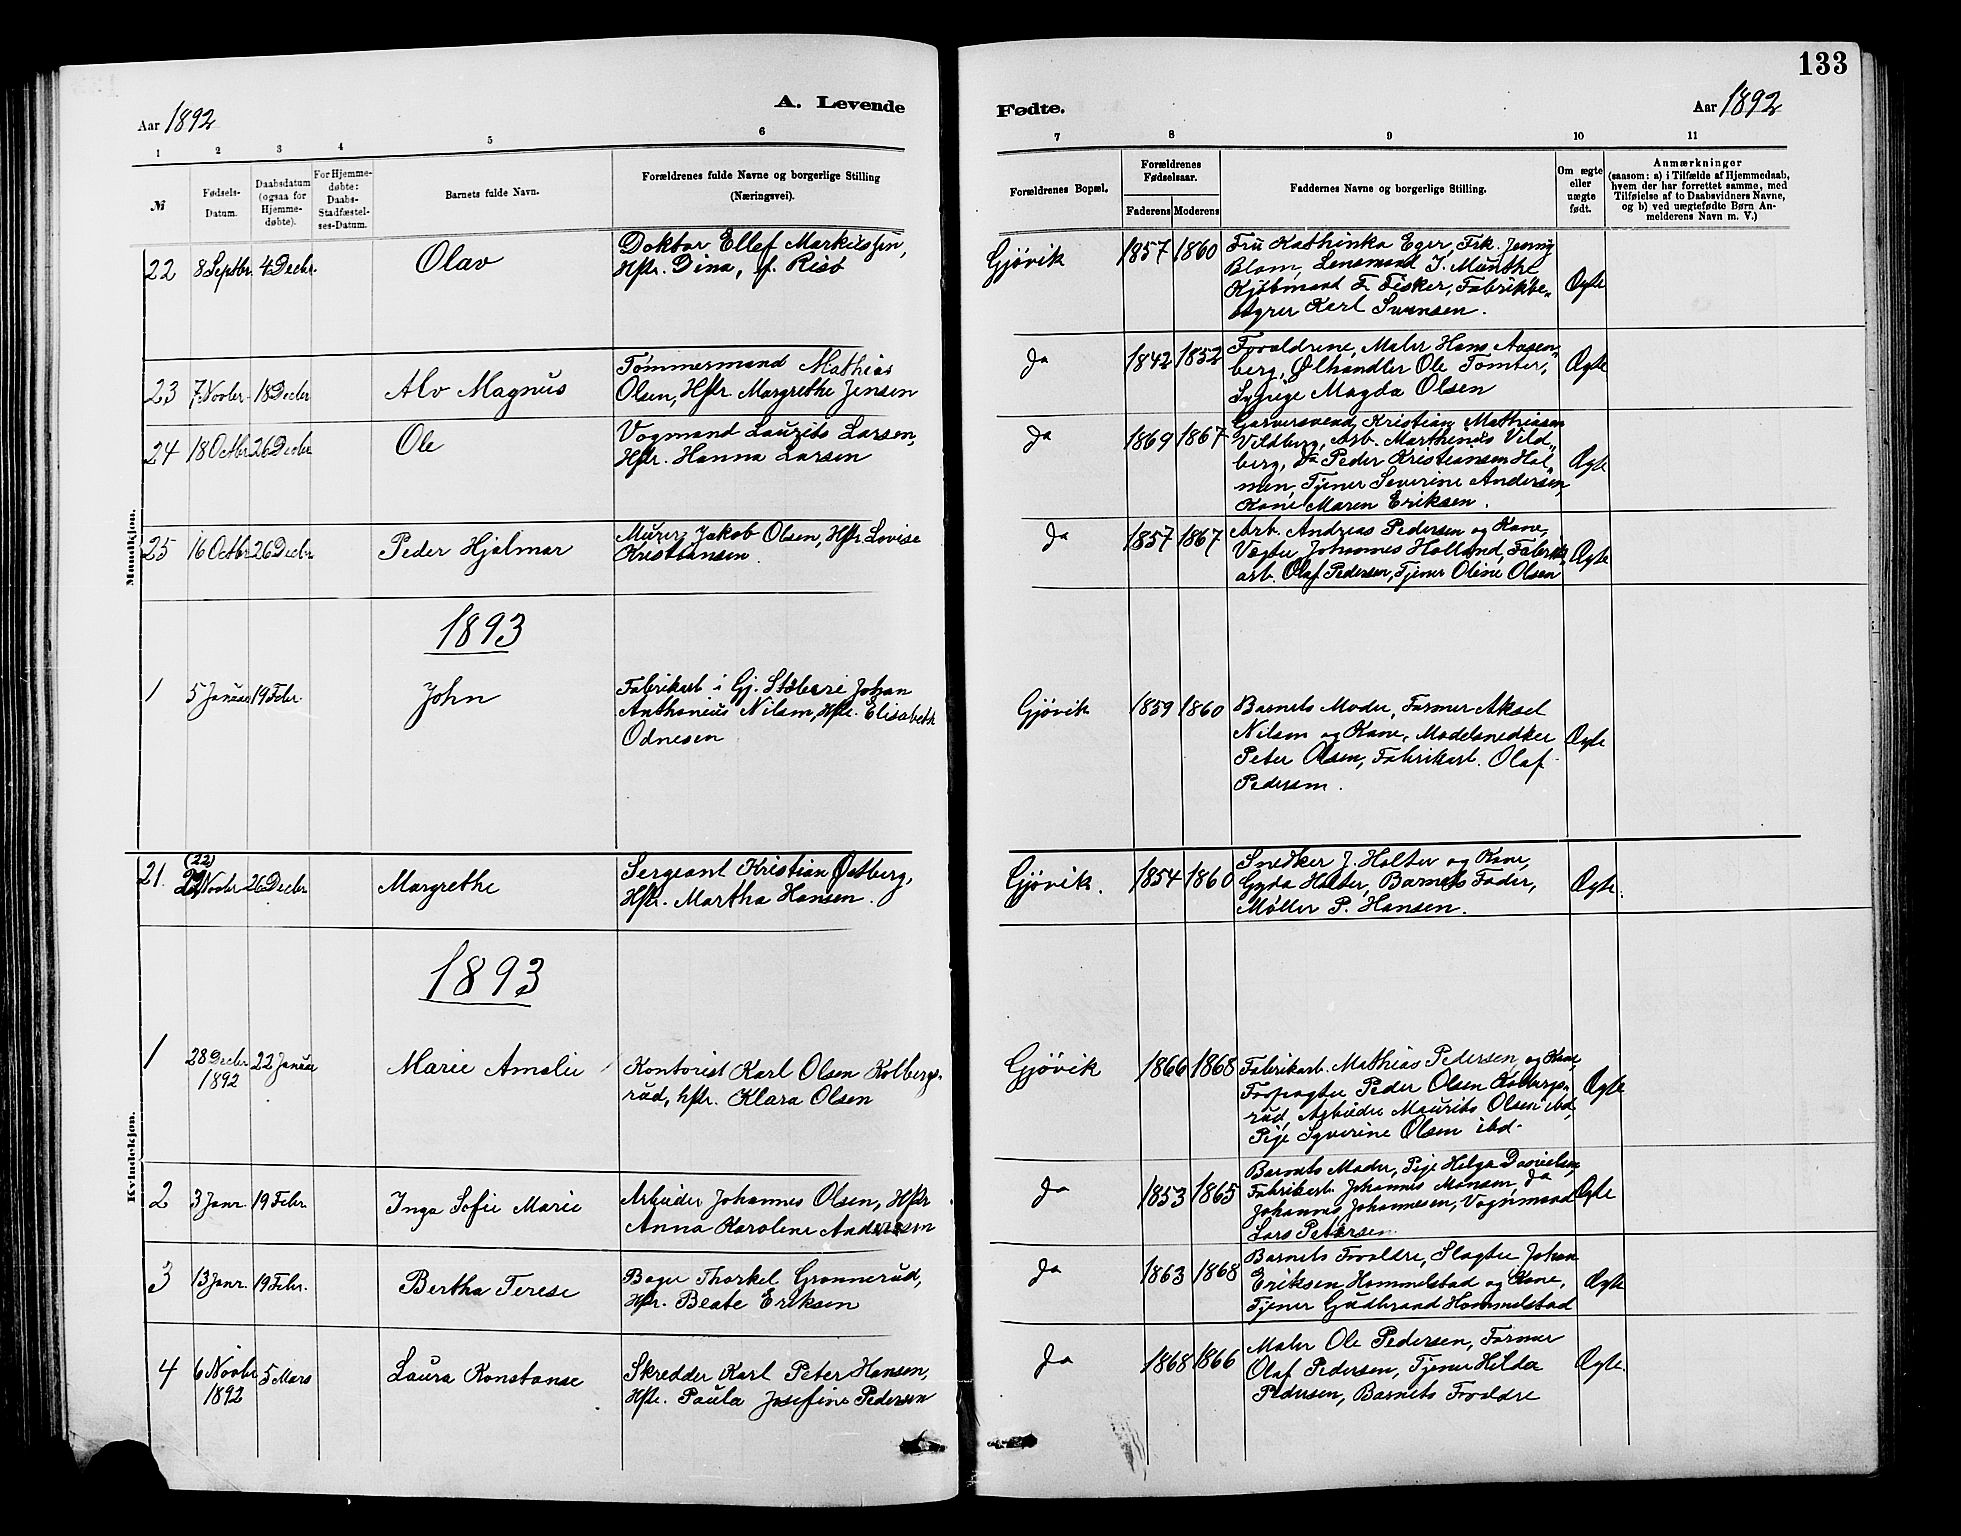 133
Aar 1892
A. Levende
Fødte.
Aar 1892
1 2 3 4 5 6 7 8 9 10 11
№
Fødsels-
Datum.
Daabsdatum
(ogsaa for
Hjemme-
døbte).
For Hjemme-
døbte:
Daabs-
Stadfæstel-
ses-Datum.
Barnets fulde Navn.
Forældrenes fulde Navne og borgerlige Stilling
(Næringsvei).
Forældrenes Bopæl.
Forældrenes
Fødselsaar.
Faderens Moderens
Faddernes Navne og borgerlige Stilling.
Om ægte
eller
uægte
født.
Anmærkninger
(saasom: a) i Tilfælde af Hjemmedaab,
hvem der har forrettet samme, med
Tilføielse af to Daabsvidners Navne,
og b) ved uægtefødte Børn An-
melderens Navn m. V.)
Mandkjøn.
22 8 Septbr. 4 Decbr. Olav
Doktor Ellef Markussen,
Hstr. Dina, f. Risö
Gjøvik 1857 1860
Fru Kathinka Eger, Frk. Jenny
Blom, Lensmand J. Munthe
Kjøbmand F. Fisker, Fabrikbe-
styrer Karl Svensen.
Ægte
23 7 Novbr. 18 Decbr Alv Magnus
Tömmermand Mathias
Olsen, Hstr Margrethe Jensen
Do 1842 1852
Forældrene, Maler Hans Aasen-
berg, Ølhandler Ole Tomter,
Sypige Magda Olsen
Ægte
24 18 Octbr 26 Decbr Ole
Vogmand Laurits Larsen,
Hstr. Hanna Larsen
Do 1869 1867
Garversvend Kristian Mathiasen
Vildberg, Arb. Marthinus Vild-
berg, do Peder Kristiansen Hol-
men, Tjener Severine Andersen,
Kone Maren Eriksen.
Ægte
25 16 Octbr 26 Decbr Peder Hjalmar
Murer Jakob Olsen, Hstr Lovise
Kristiansen.
Do 1857 1867
Arb. Andreas Pedersen og Kone,
Vægter Johannes Holland, Fabrik-
arb. Olaf Pedersen, Tjener Oline Olsen
Ægte
1893
1 5 Januar 19 Febr. John
Fabrikarb i Gj. Støberi Johan
Anthonius Nilsen, Hstr. Elisabeth
Odnesen
Gjøvik 1859 1860
Barnets Moder, Former Aksel
Nilsen og Kone, Modelsnedker
Peter Olsen, Fabrikarb. Olaf
Pedersen.
Ægte
Kvindekjøn.
(22)
21. Novbr 26 Decbr Margrethe
Sergeant Kristian Østberg,
Hstr. Martha Hansen.
Gjøvik. 1854 1860
Snedker J. Holter og Kone,
Gyda Holter, Barnets Fader,
Møller P. Hansen.
Ægte.
1893
1 28 Decbr 22 Januar Marie Amalie
1892
Kontorist Karl Olsen Kolbergs-
rud, hstr. Klara Olsen
Gjøvik 1866 1868
Fabrikarb. Mathias Pedersen og Kone,
Forpagter Peder Olsen Kolbergs-
rud, Arbeider Maurits Olsen ibd,
Pige Syverine Olsen ibd.
Ægte
2 3 Janr. 19 Febr. Inga Sofie Marie
Arbeider Johannes Olsen, Hstr
Anna Karoline Andersen
Do 1853 1865
Barnets Moder, Pige Helga Danielsen,
Fabrikarb. Johannes Monsen, do
Johannes Johannesen, Vognmand
Lars Petersen.
Ægte
3 13 Janr. 19 Febr. Bertha Terese
Bager Thorkel Grønnerud,
Hstr. Beate Eriksen
Do 1863 1868
Barnets Forældre, Slagter Johan
Eriksen Hommelstad og Kone,
Tjener Gudbrand Hommelstad
Ægte
4 6 Novbr 5 Mars Laura Konstanse
1892
Skredder Karl Peter Hansen,
Hstr. Paula Josefine Pedersen
Do 1868 1866
Maler Ole Pedersen, Former
Olaf Pedersen, Tjener Hilda
Pedersen, Barnets Forældre
Ægte.